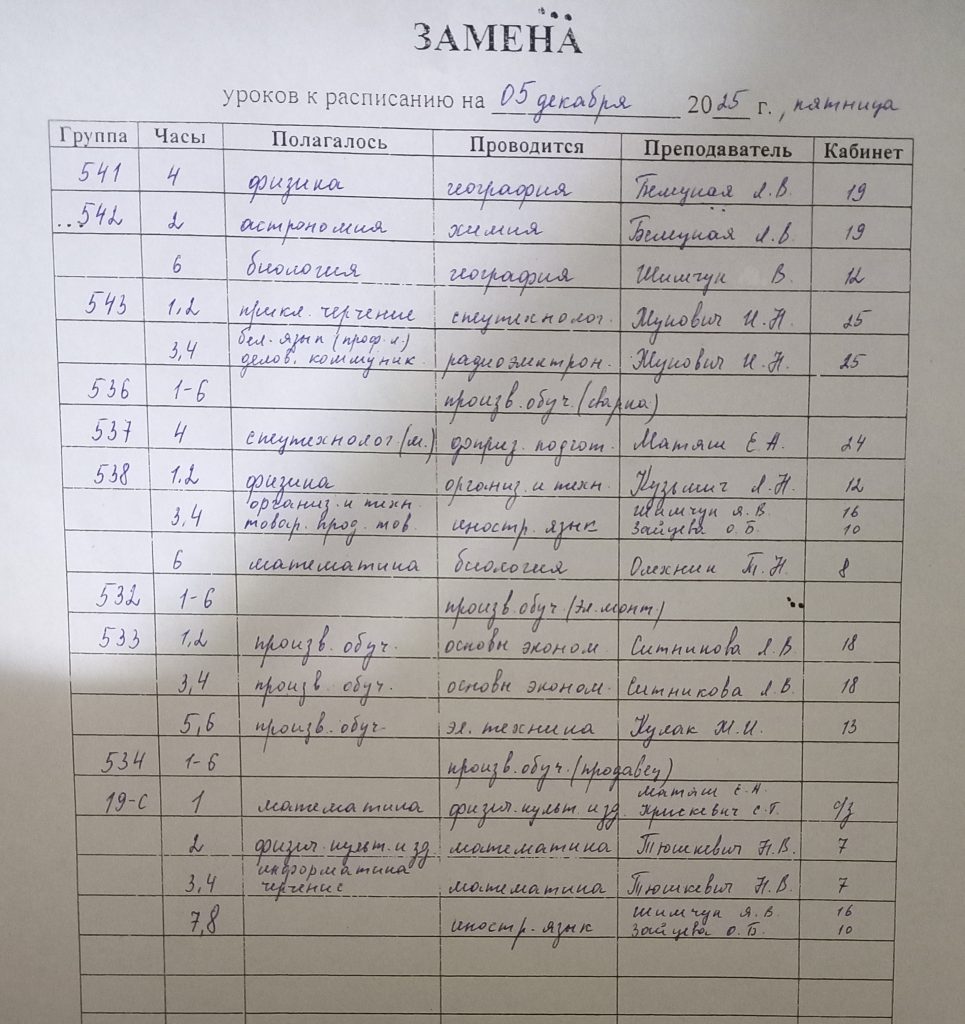 ЗАМЕНА
уроков к расписанию на 05 декабря 2025 г., пятница
Группа Часы Полагалось Проводится Преподаватель Кабинет
541 4 физика география Белецкая Л.В. 19
542 2 астрономия химия Белецкая Л.В. 19
6 биология география Шимчук В. 12
543 1,2 прикл. черчение спецтехнолог. Жукович И.Н. 25
3,4 бел. язык (проф. л.)
делов. коммуник. радиоэлектрон. Жукович И.Н. 25
536 1-6 произв. обуч. (сварка)
537 4 спецтехнолог. (м.) доприз. подгот. Матяш Е.А. 24
538 1.2 физика организ. и техн. Кузьмич Л.Н. 12
организ. и техн. Шимчук Я.В. 16
3,4 товар. прод. тов. иностр. язык Зайцева О.Б. 10
6 математика биология Олехник Т.Н. 8
532 1-6 произв. обуч. (эл. монт.)
533 1,2 произв. обуч. основы эконом. Ситникова Л.В. 18
3,4 произв. обуч. основы эконом. Ситникова Л.В. 18
5,6 произв. обуч. эл. техника Кулак Ж.И. 13
534 1-6 произв. обуч. (продавец)
Матяш Е.А.
19-С 1 математика физич. культ. и зд. Крискевич С.Г. с/з
2 физич. культ. и зд. математика Тюшкевич Н.В. 7
информатика
3,4 черчение математика Тюшкевич Н.В. 7
Шимчук Я.В. 16
7,8 иностр. язык Зайцева О.Б. 10